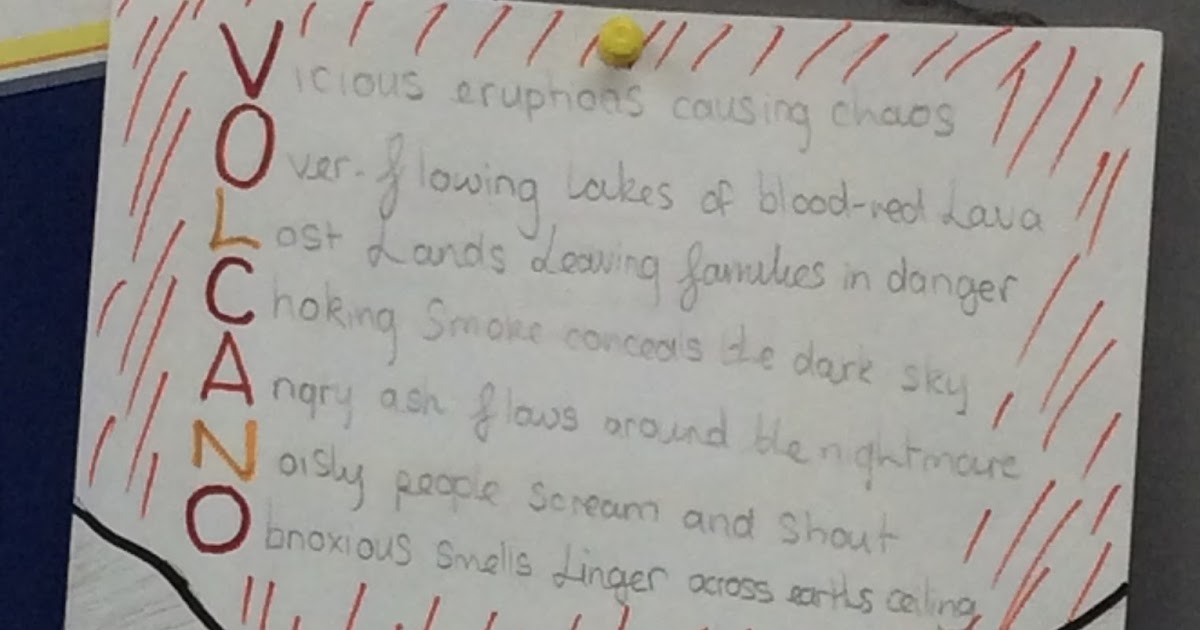 Vicious eruptions causing chaos
Over-flowing Lakes of blood-red Lava
Lost Lands Leaving families in danger
Choking Smoke conceals the dark sky
Angry ash flows around the nightmare
Noisly people scream and shout
Obnoxious smells Linger across earths ceiling